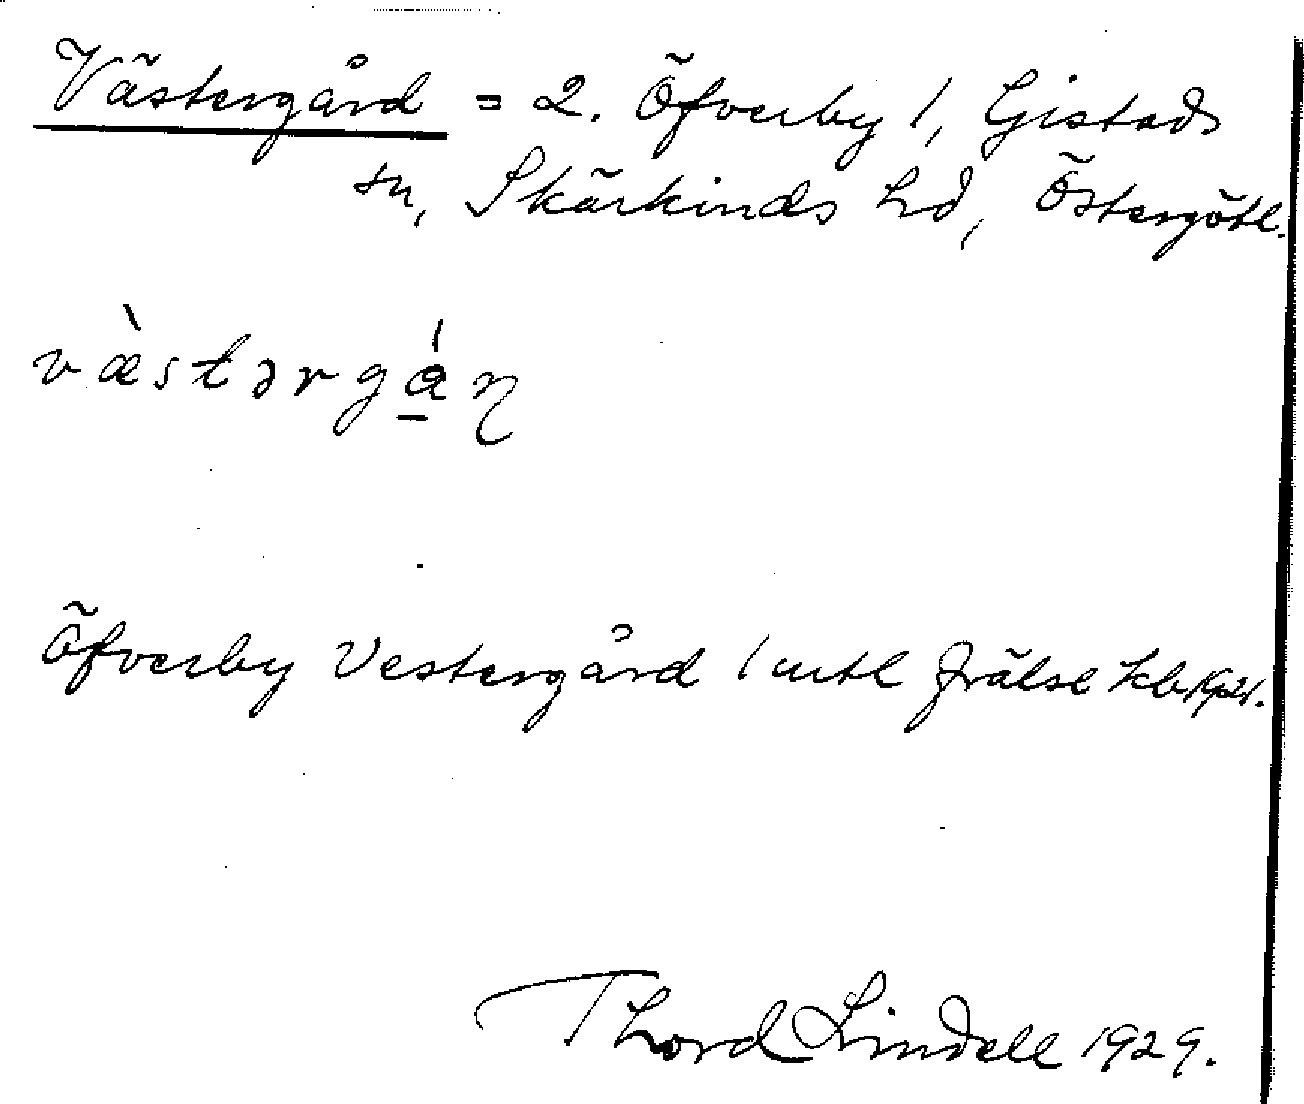 Västergård = 2. Öfverby 1, Gistads
sn, Skärkinds hd, Östergötl.
væ̀stərgá̱ɳ
Öfverby Vestergård 1 mtl frälse Kb. 1921.
Thord Lindell 1929.